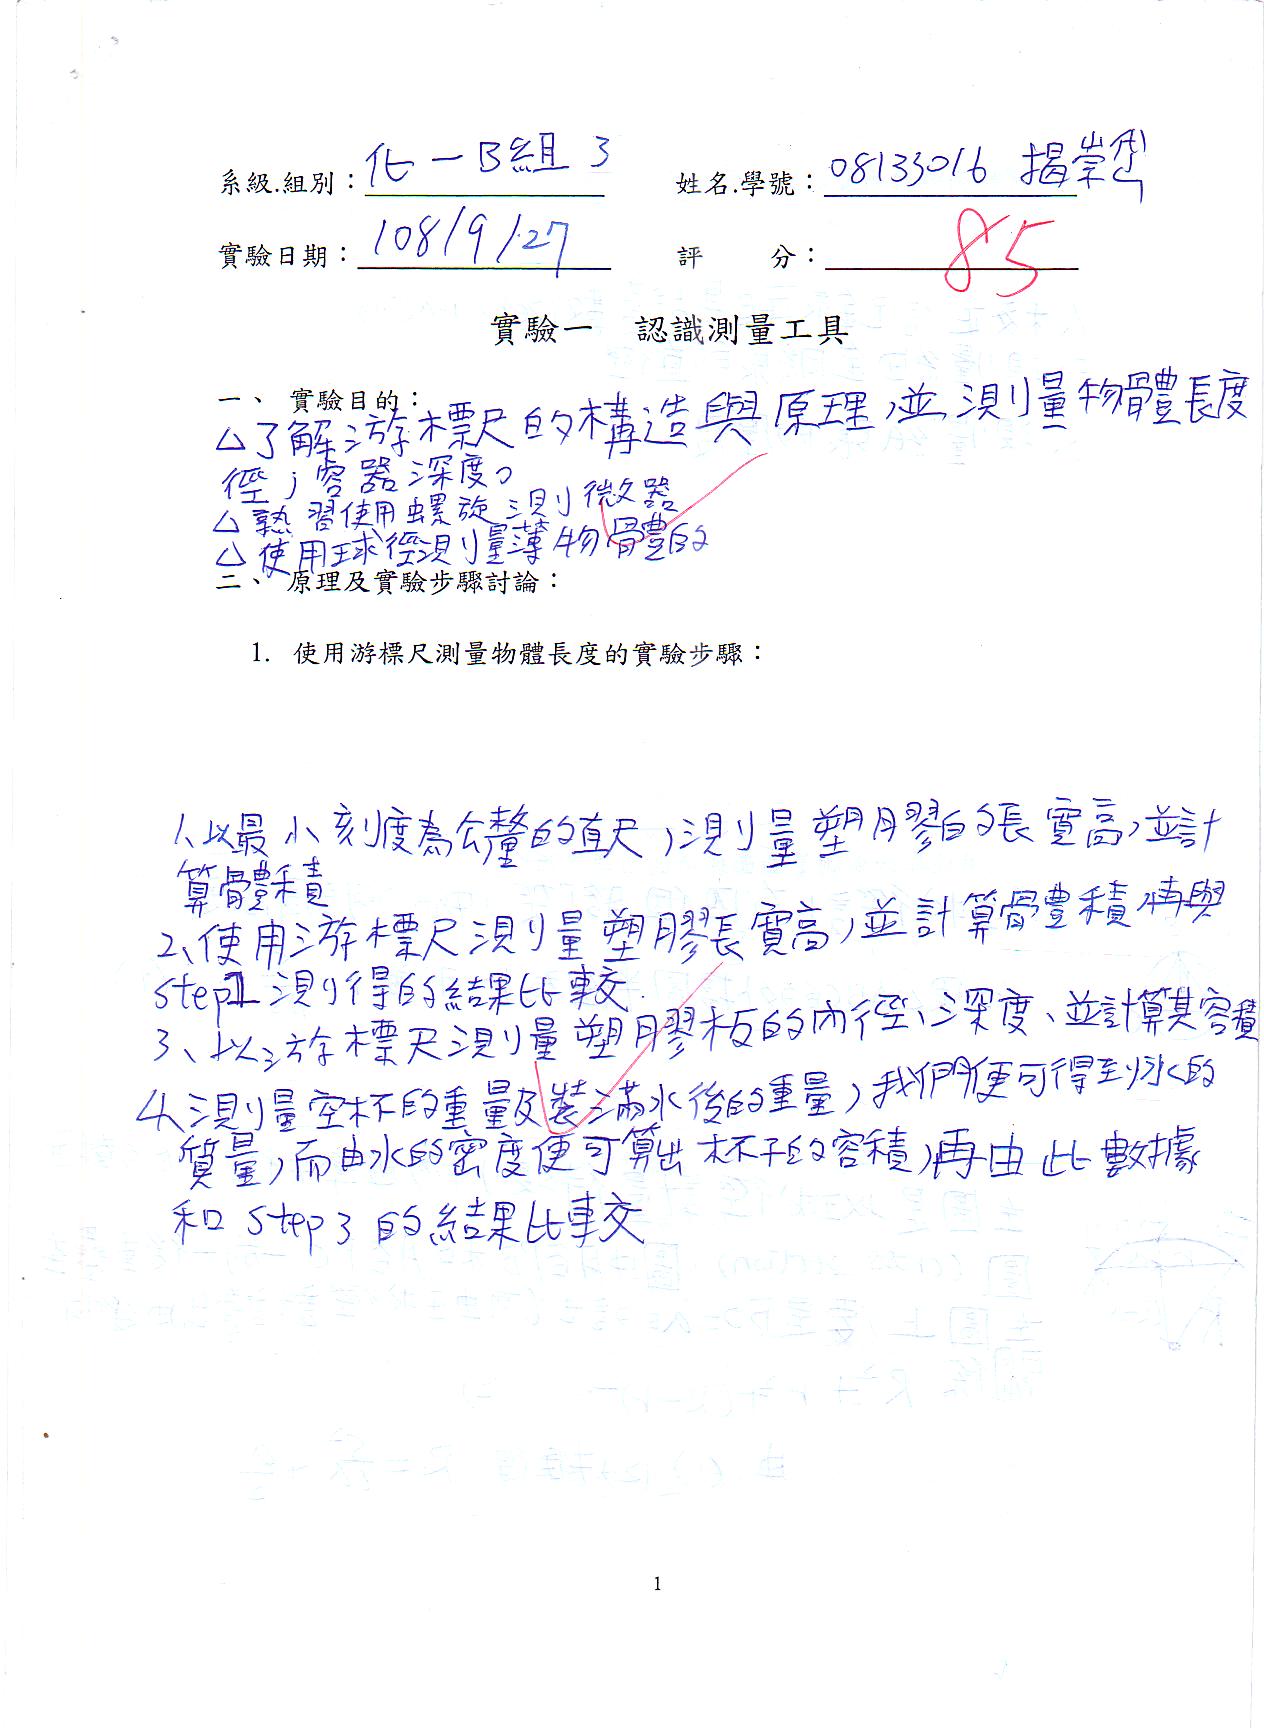 系級.組別：化一B組 3
姓名.學號：08133016 揭崇
實驗日期：108/9/27
評 分：85
實驗一 認識測量工具
一、 實驗目的：
△了解游標尺的構造與原理,並測量物體長度
徑；容器深度。
△熟習使用螺旋測微器
△使用球徑測量薄物體的
二、 原理及實驗步驟討論：
1. 使用游標尺測量物體長度的實驗步驟：
1、以最小刻度為公釐的直尺,測量塑膠的長寬高,並計
算體積
2、使用游標尺測量塑膠長寬高,並計算體積,再與
step1測得的結果比較
3、以游標尺測量塑膠板的內徑、深度、並計算其容積
4、測量空杯的重量及裝滿水後的重量,我們便可得到水的
質量,而由水的密度便可算出杯子的容積,再由此數據
和 step 3 的結果比較
1